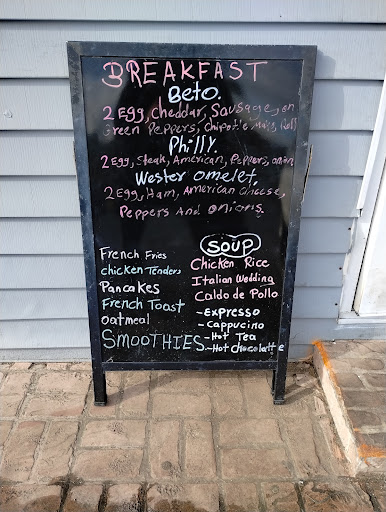 BREAKFAST
Beto.
2 Egg, cheddar, Sausage, on
Green Peppers, Chipotle Mayo, Roll
Philly.
2 Egg, Steak, American, Peppers, onion
Wester omelet,
2 Egg, Ham, American Cheese,
Peppers And onions.
French Fries
chicken Tenders
Pancakes
French Toast
oatmeal
SMOOTHIES
SOUP
Chicken Rice
Italian Wedding
Caldo de Pollo
- Expresso
- Cappucino
- Hot Tea
- Hot chocolatte